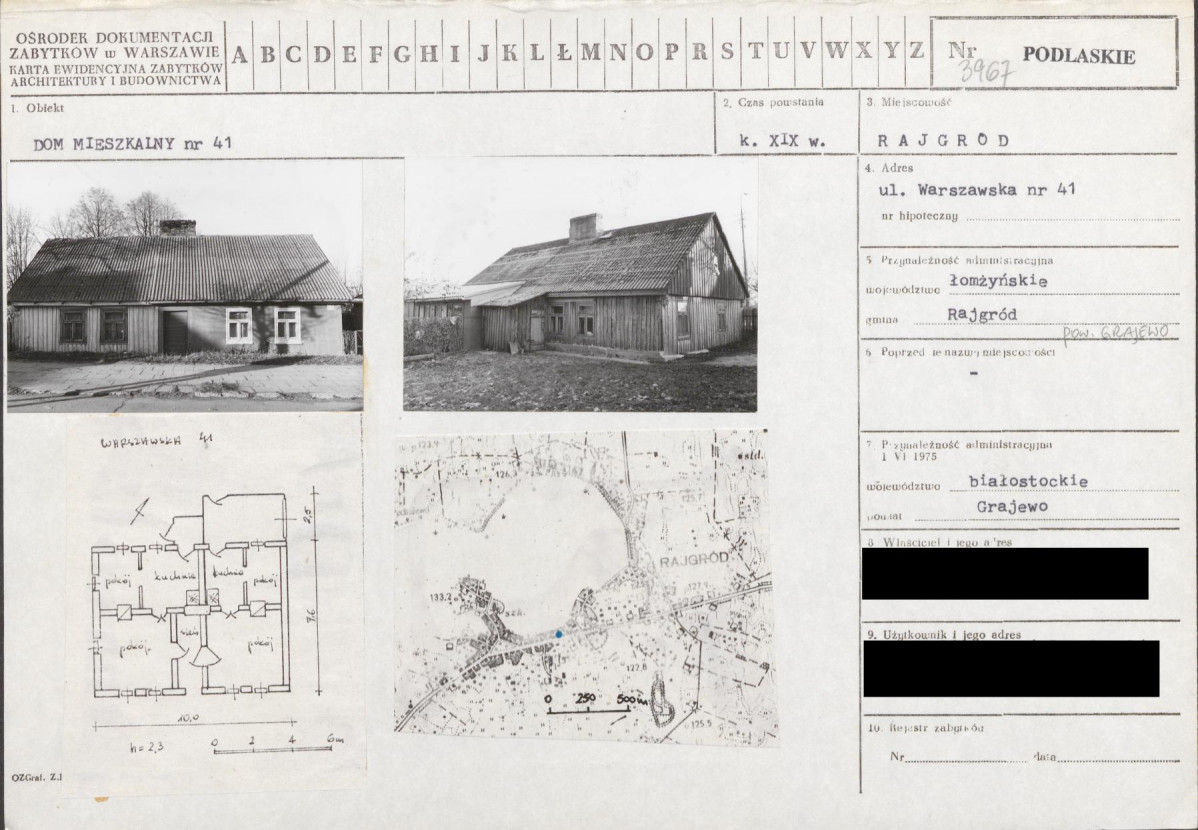 OŚRODEK DOKUMENTACJI
ZABYTKÓW w WARSZAWIE
KARTA EWIDENCYJNA ZABYTKÓW
ARCHITEKTURY I BUDOWNICTWA
A B C D E F G H I J K L Ł M N O P R S T U V W X Y Z
Nr 3967 PODLASKIE
1. Obiekt
DOM MIESZKALNY nr 41
2. Czas powstania
k. XIX w.
3. Miejscowość
RAJGRÓD
4. Adres
ul. Warszawska nr 41
nr hipoteczny
5 Przynależność administracyjna
województwo łomżyńskie
gmina Rajgród
pow. GRAJEWO
6 Poprzednie nazwy miejscowości
-
7 Przynależność administracyjna
1 VI 1975
województwo białostockie
powiat Grajewo
8 Właściciel i jego adres
9. Użytkownik i jego adres
10. Rejestr zabytków
Nr data
WARSZAWSKA 41
2,5
pokój kuchnia kuchnia pokój
7,6
pokój sień pokój
10,0
h=2,3
0 2 4 6m
123,9
126,3
125,7
std.
RAJGRÓD
133,2
127,9
122,8
0 250 500m
125,5
OZGraf. Z.I